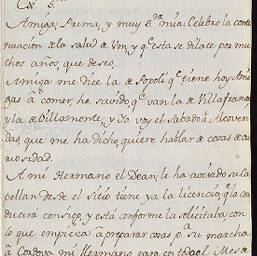 Cx. S.
Amiga, Prima, y muy S.ra mia: Celebro la conti
nuacion de la salud de Vm, y q.e esta se dilate por mu
chos años, que deseo.
Amiga me dice la de Sopoli q.e tiene hoy Ami
gas á comer, he savido q.e van la de Villafranca
y la de Villamonte, y Yo voy el Sabado á Alcoven
das que me ha dicho, quiere hablar de cosas de cu
riosidad.
A mi Hermano el Dean, le ha avisado su Ca
pellan desde el Sitio tiene ya la licencia, q.e la con
ducirá consigo, y está conforme la solicitaba, con
lo que empieza á preparar cosas p.a su marcha
á Cordova mi Hermano para en todo el Mes de